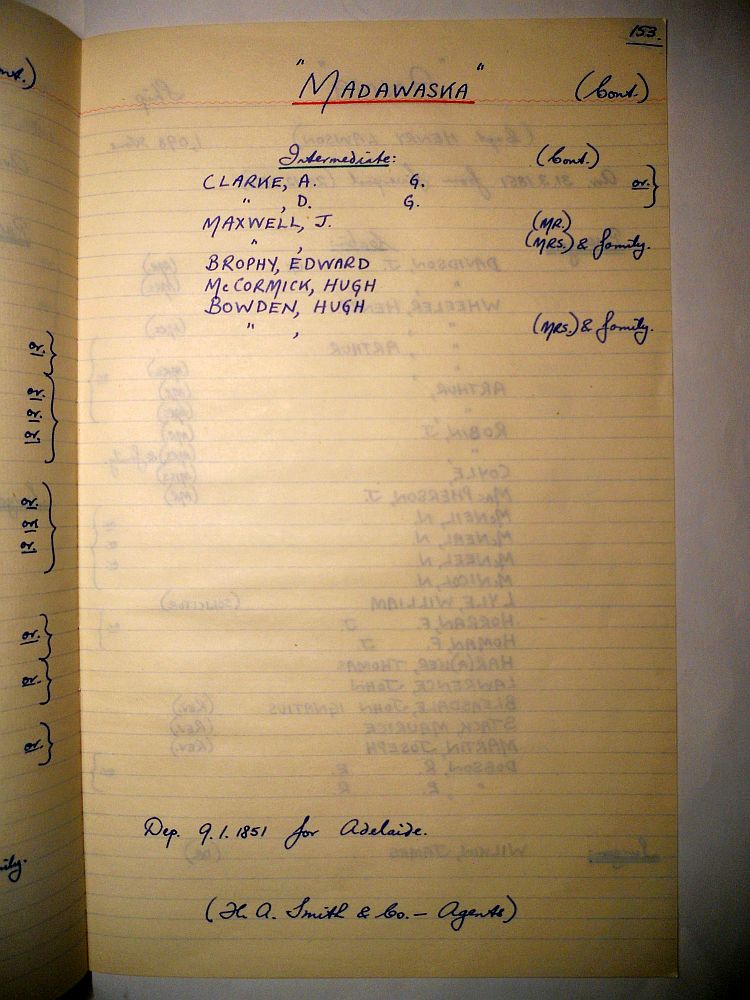 153.
"MADAWASKA" (Cont.)
Intermediate: (Cont.)
CLARKE, A. G. or. }
" , D. G.
MAXWELL, J. (MR.)
" , (MRS.) & family.
BROPHY, EDWARD
McCORMICK, HUGH
BOWDEN, HUGH
" , (MRS.) & family.
Dep. 9.1.1851 for Adelaide.
(H. A. Smith & Co. — Agents)